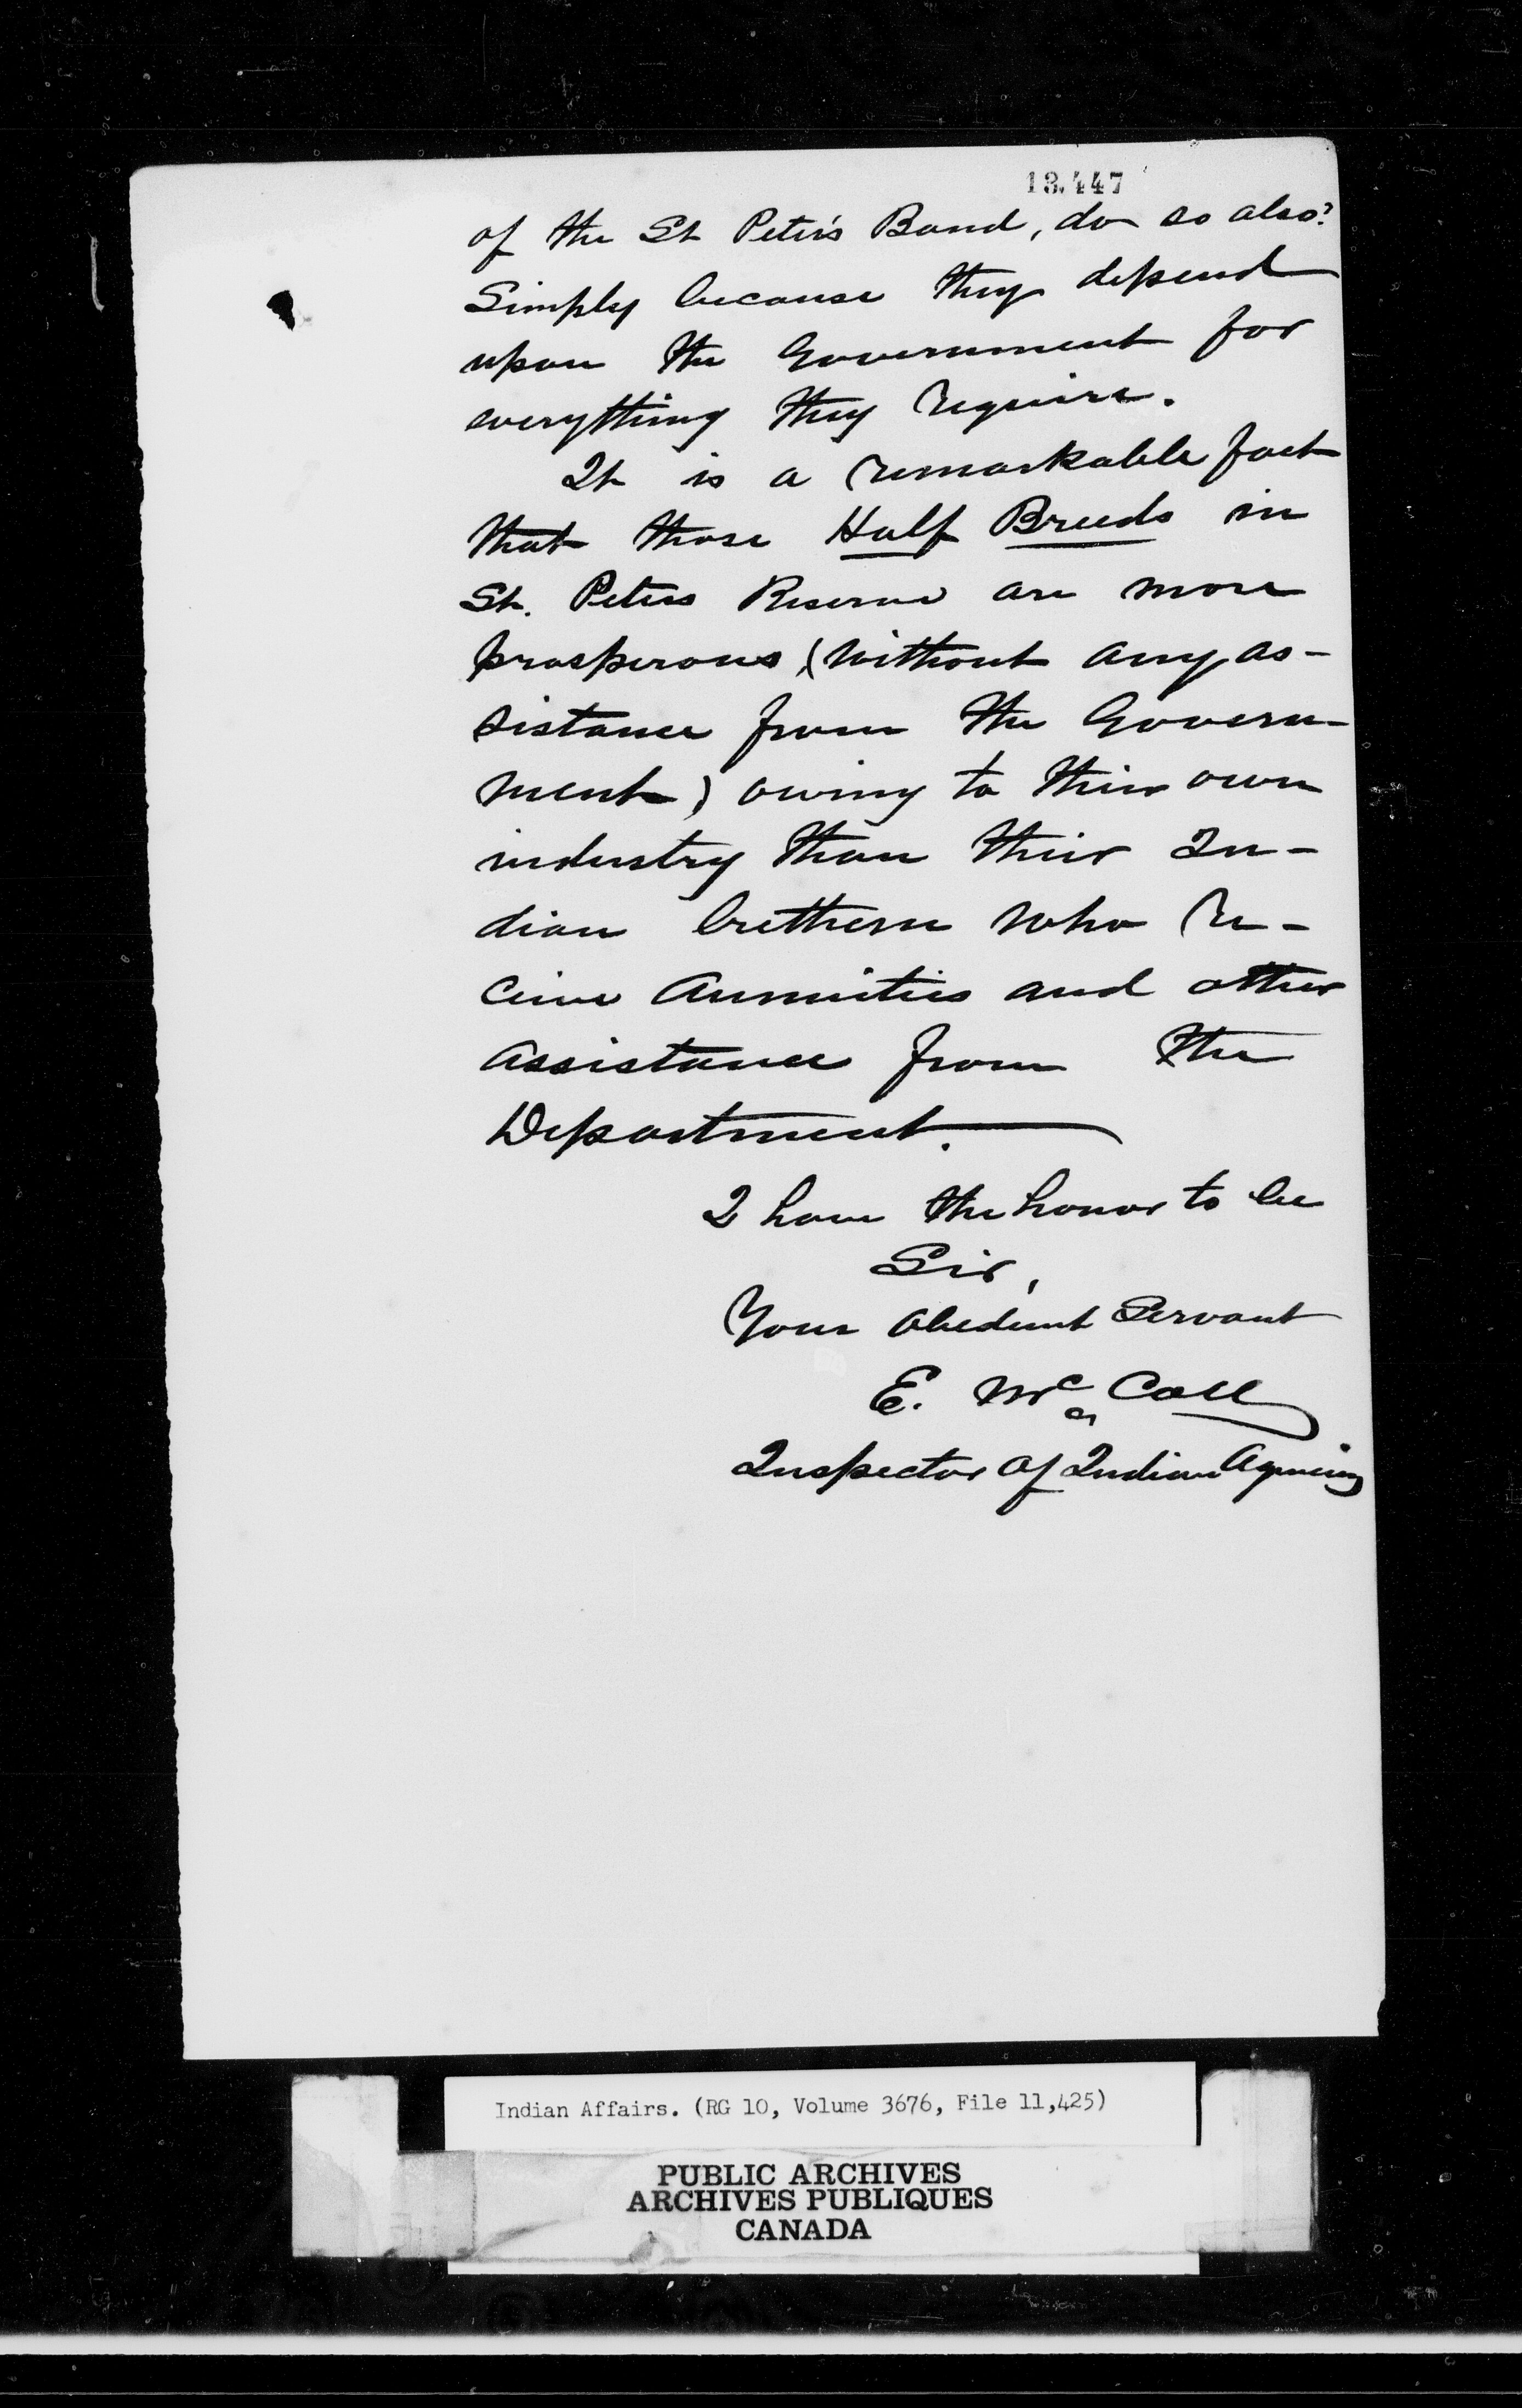 13,447
of the St Peter's Band, do so also?
Simply because they depend
upon the Government for
everything they require.
It is a remarkable fact
that those Half Breeds in
St. Peters Reserve are more
prosperous, (without any as-
sistance from the Govern-
ment) owing to their own
industry than their In-
dian brethern who re-
ceive Annuities and other
assistance from the
Department.
I have the honor to be
Sir,
Your obedient Servant
E. McColl
Inspector of Indian Agencies
Indian Affairs. (RG 10, Volume 3676, File 11,425)
PUBLIC ARCHIVES
ARCHIVES PUBLIQUES
CANADA